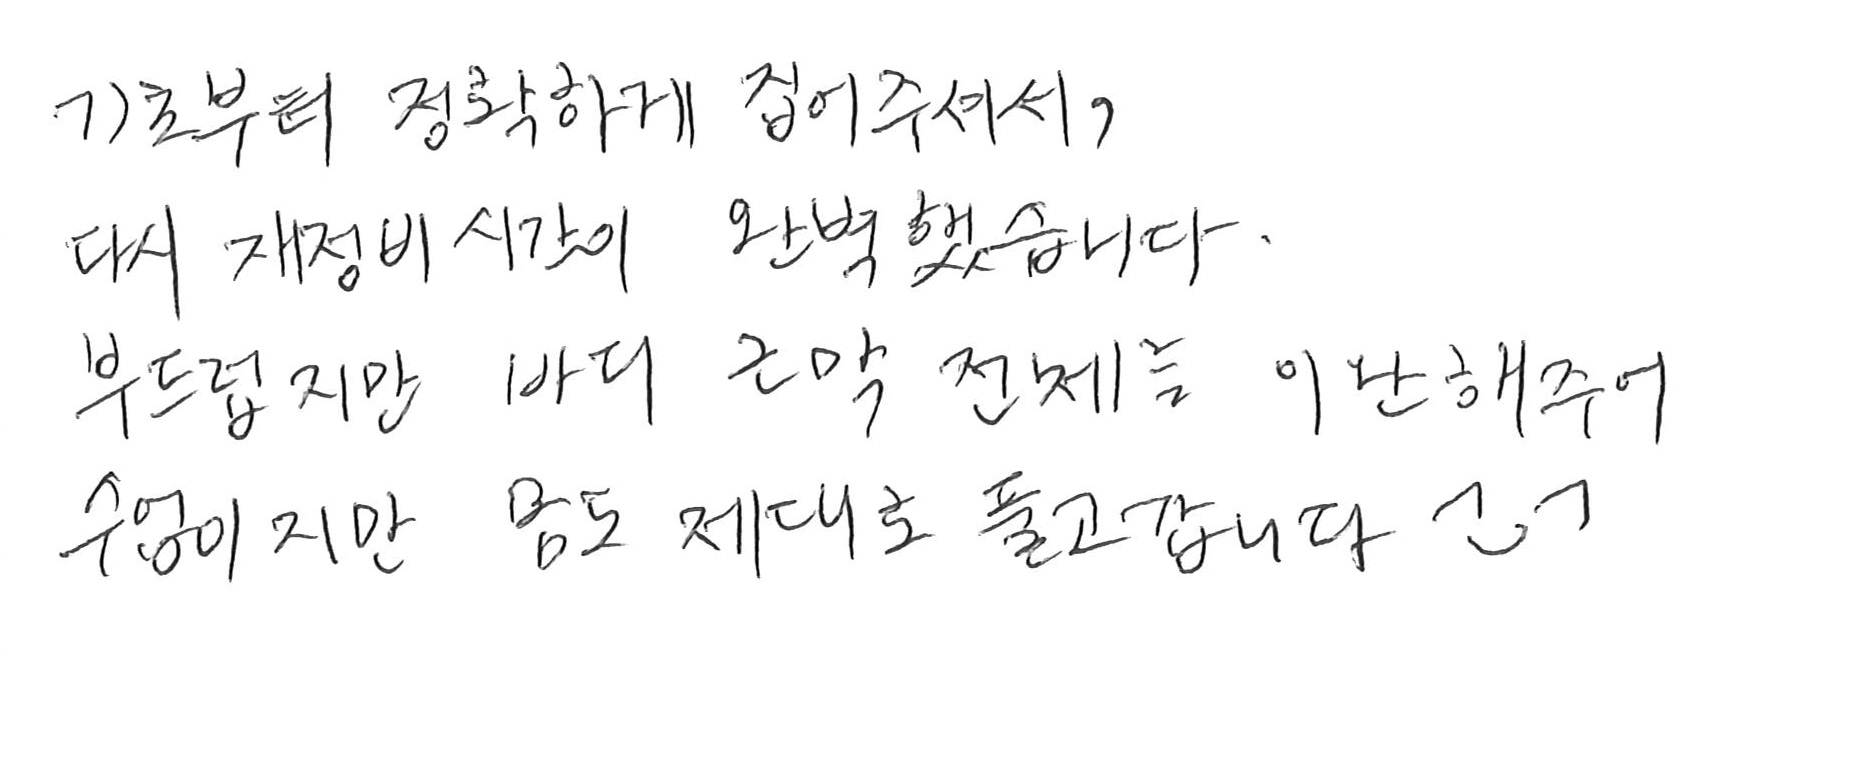 기초부터 정확하게 집어주셔서,
다시 재정비 시간이 완벽했습니다.
부드럽지만 바디 근막 전체를 이난해주어
수업이지만 몸도 제대로 풀고갑니다